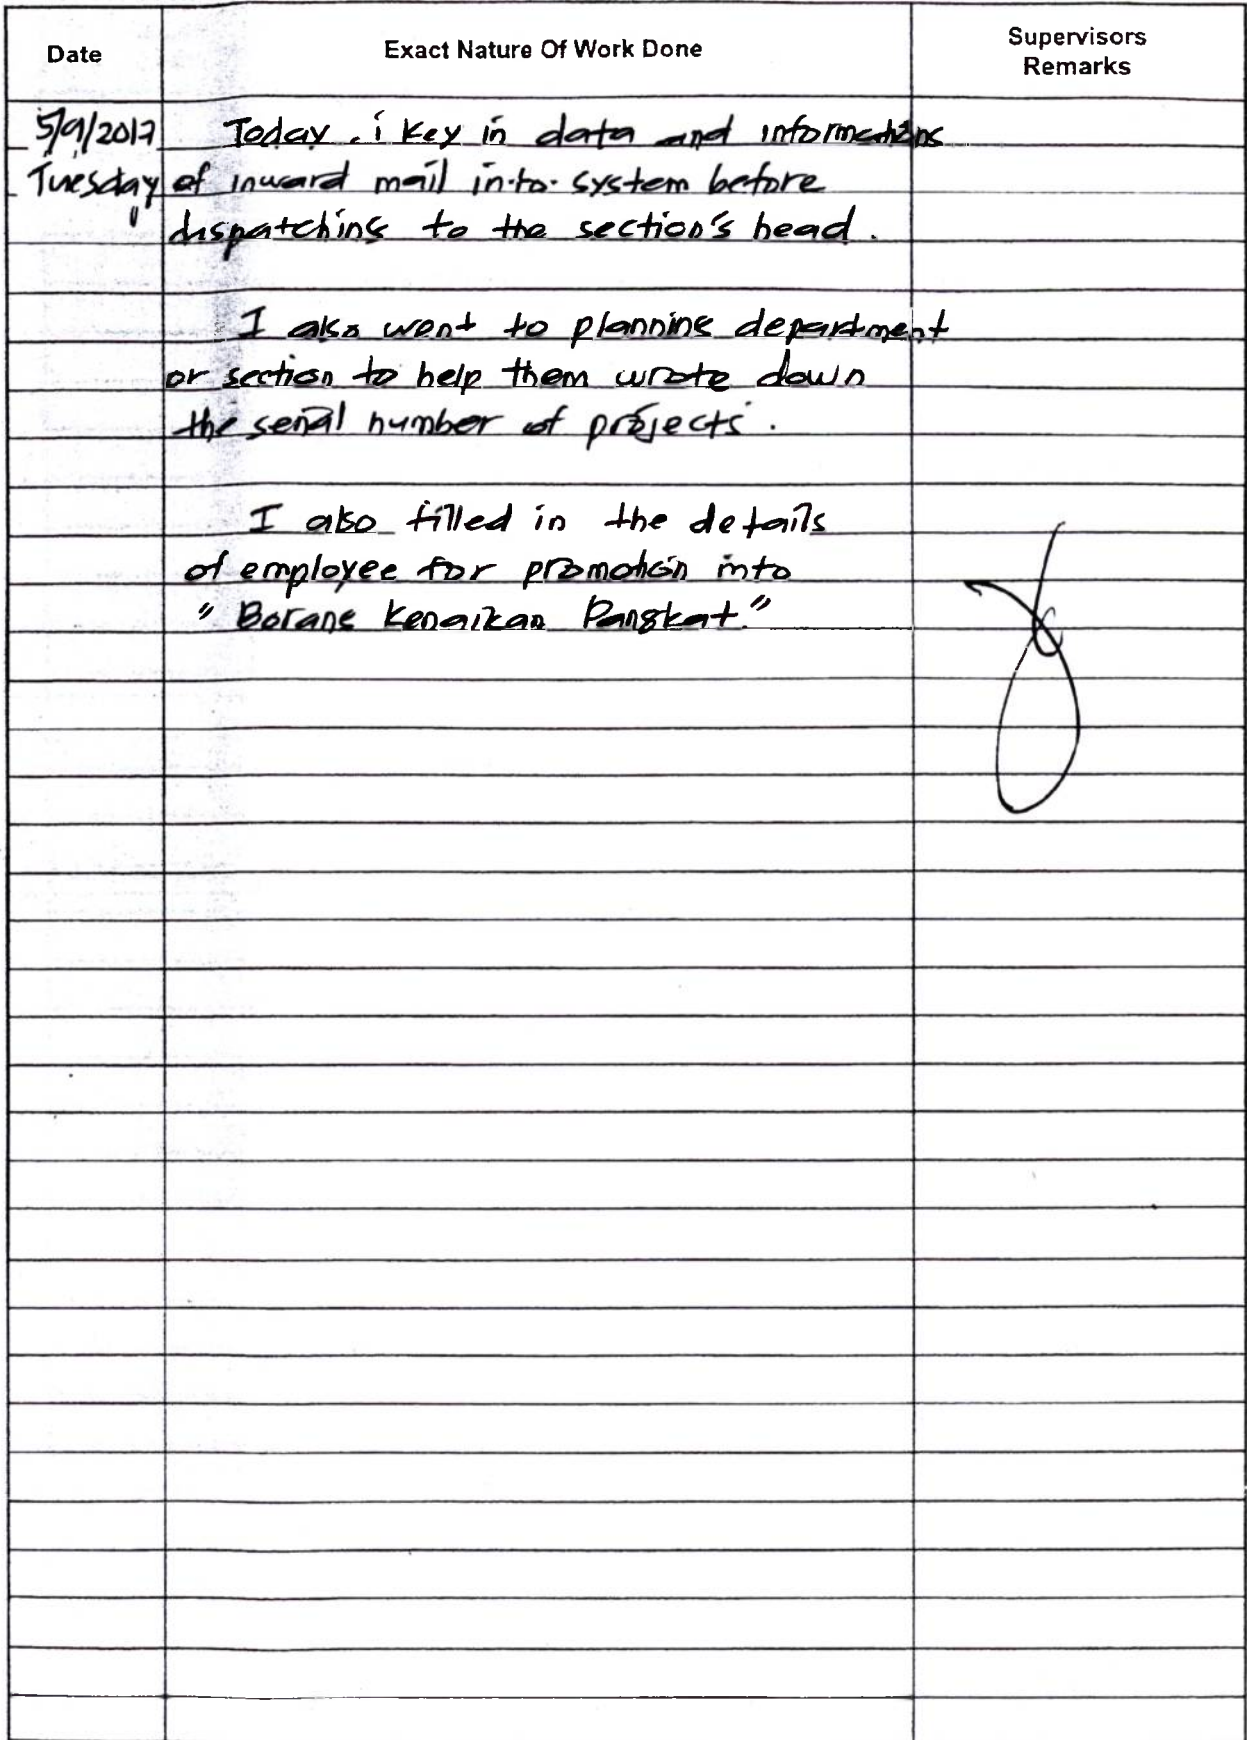 Date
Exact Nature Of Work Done
Supervisors
Remarks
5/9/2017 Today, i key in data and informations
Tuesday of inward mail in to system before
dispatching to the section's head.
I also went to planning department
or section to help them wrote down
the serial number of projects.
I also filled in the details
of employee for promotion into
"Borang Kenaikan Pangkat"